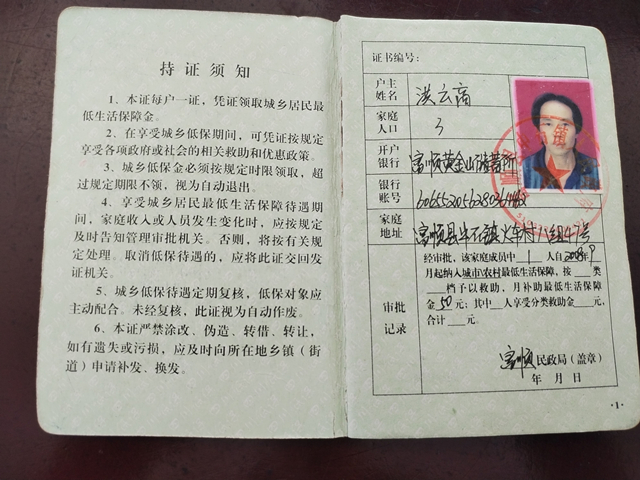 持证须知
1、本证每户一证，凭证领取城乡居民最
低生活保障金。
2、在享受城乡低保期间，可凭证按规定
享受各项政府或社会的相关救助和优惠政策。
3、城乡低保金必须按规定时限领取，超
过规定期限不领，视为自动退出。
4、享受城乡居民最低生活保障待遇期
间，家庭收入或人员发生变化时，应按规定
及时告知管理审批机关。否则，将按有关规
定处理。取消低保待遇的，应将此证交回发
证机关。
5、城乡低保待遇定期复核，低保对象应
主动配合。未经复核，此证视为自动作废。
6、本证严禁涂改、伪造、转借、转让，
如有遗失或污损，应及时向所在地乡镇（街
道）申请补发、换发。
证书编号：
户主姓名 洪云高
家庭人口 3
开户银行 富顺黄金山储蓄所
银行账号
家庭地址 富顺县牛石镇火车村八组47号
审批记录
经审批，该家庭成员中1人自2008年9
月起纳入城市\农村最低生活保障，按 类
档予以救助，月补助最低生活保障
金50元；其中 人享受分类救助金 元，
合计 元。
富顺民政局（盖章）
年 月 日
·1·